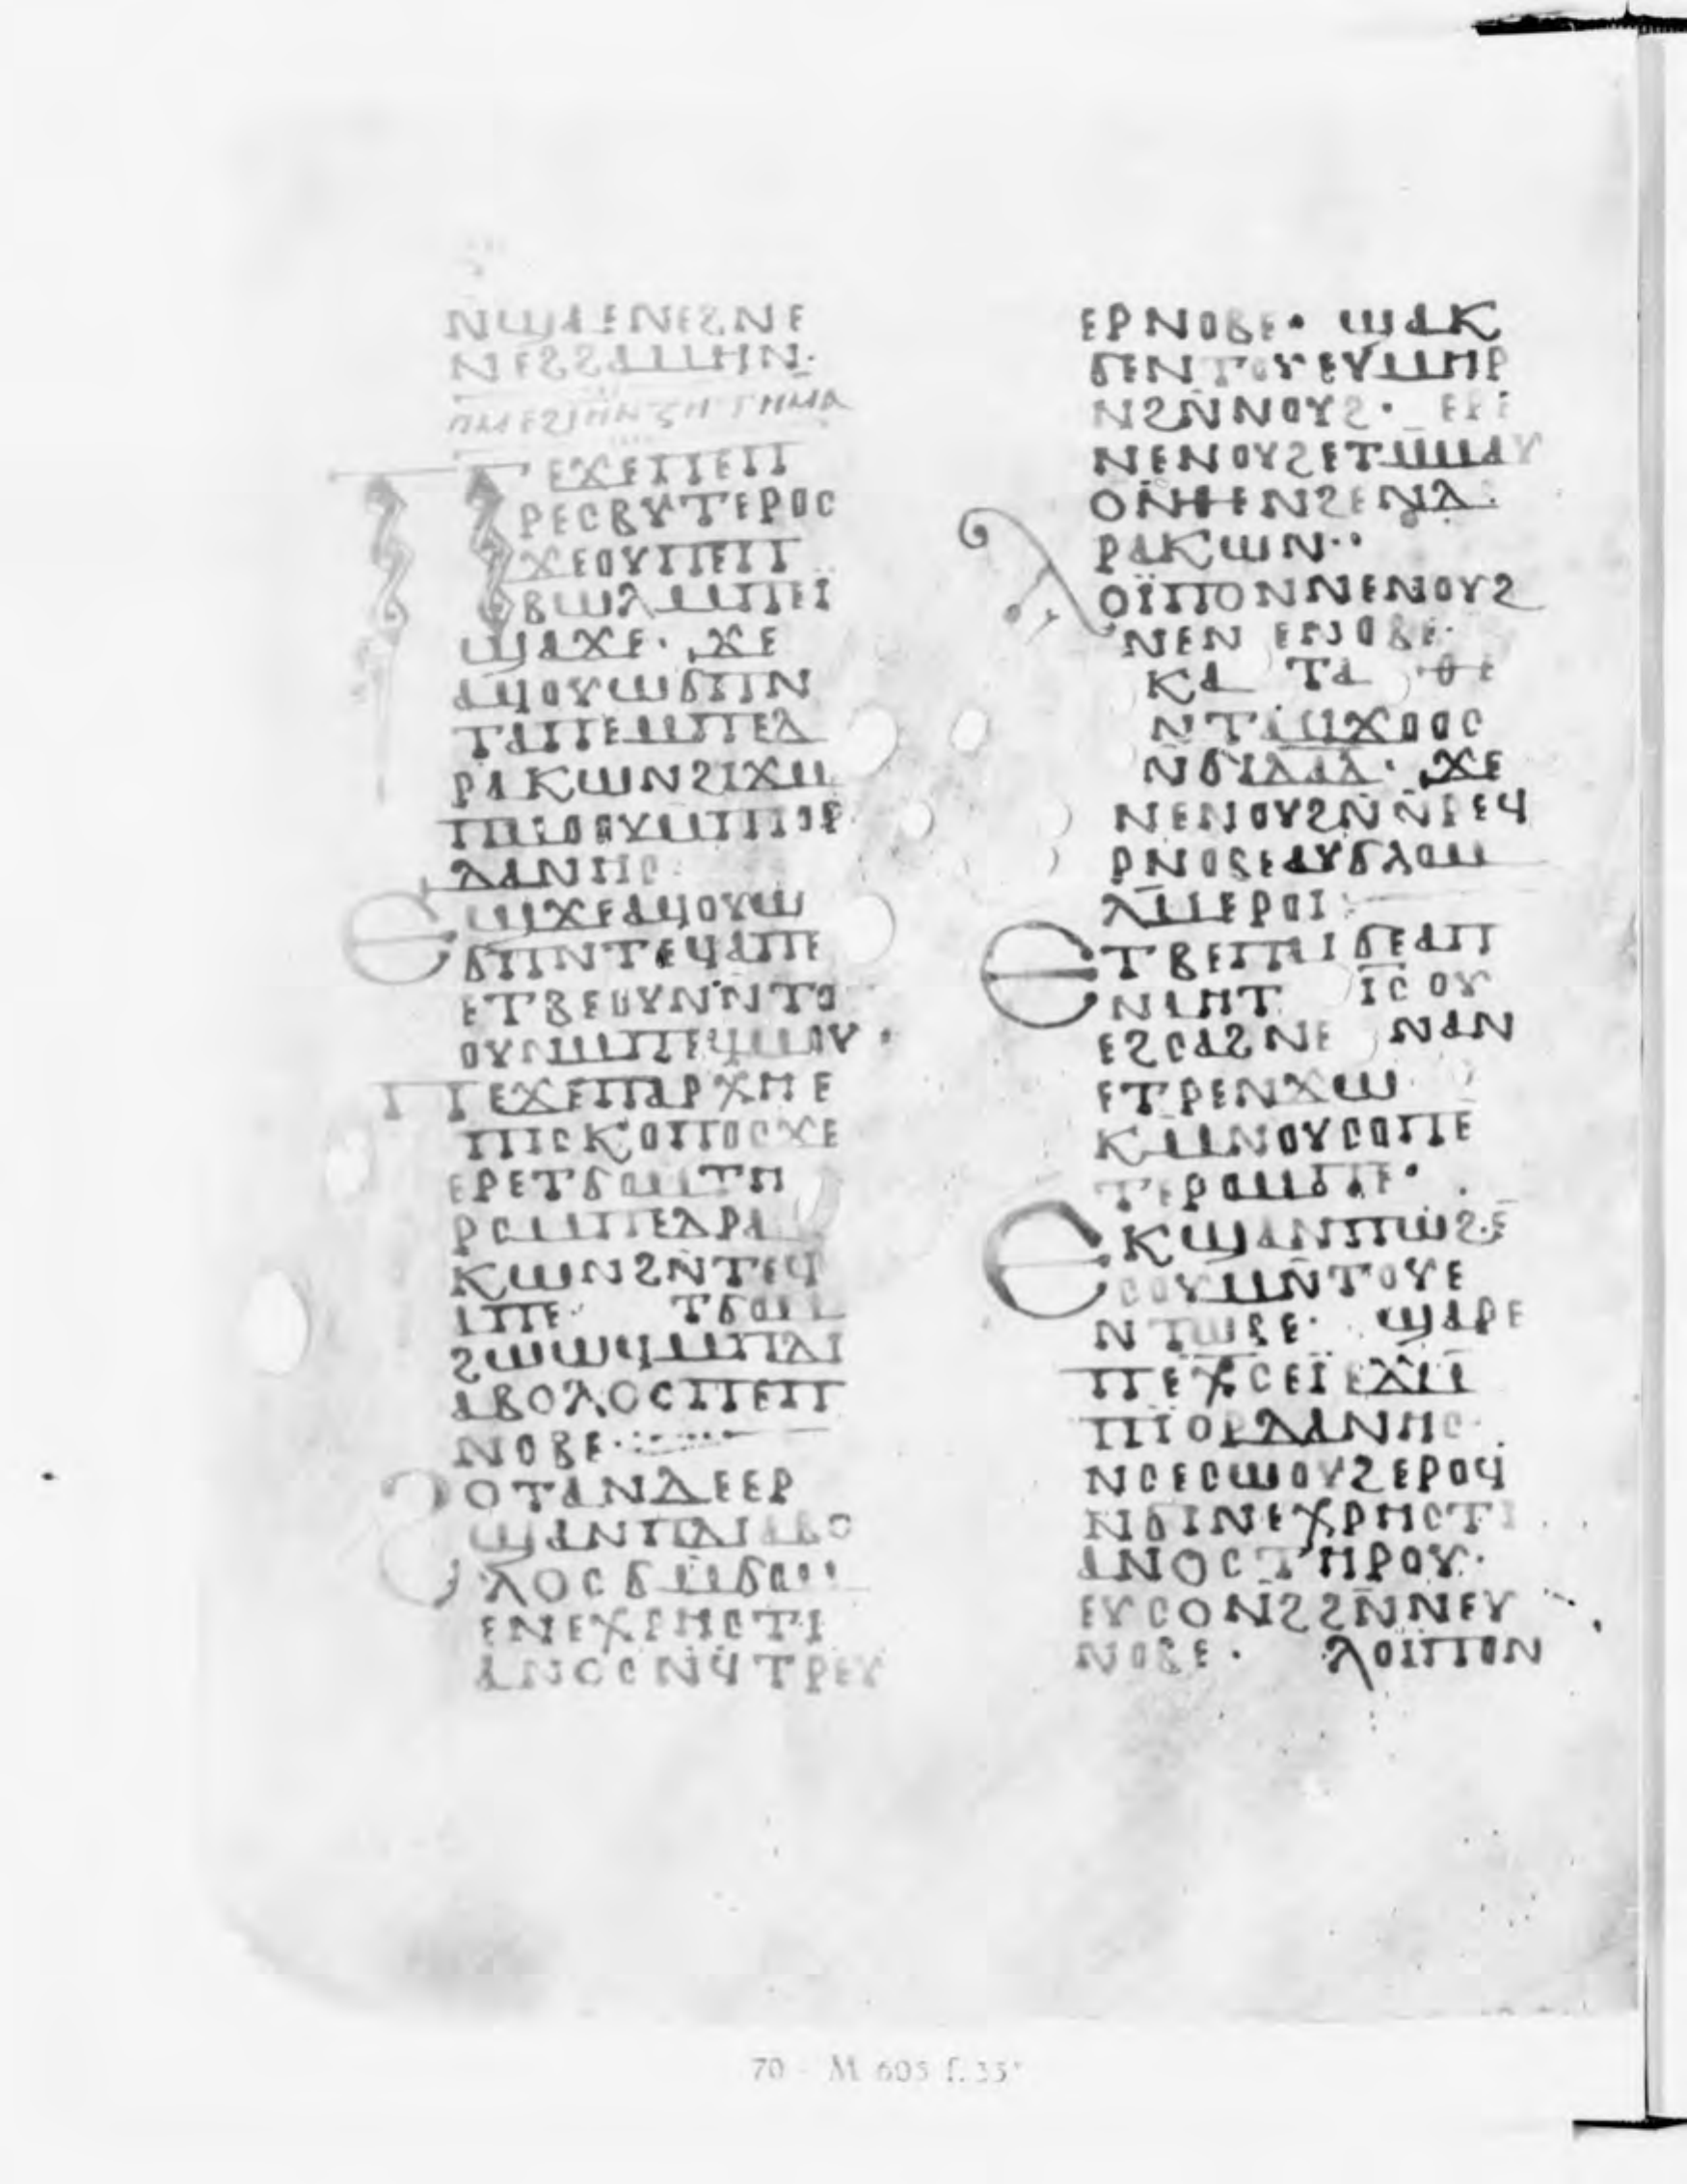 ⲚϢⲀⲈⲚⲈϨⲚⲈ
ⲚⲈϨϨⲀⲘⲎⲚ·
ⲠⲘⲈϨⲒⲎ ⲚⲌⲎⲦⲎⲘⲀ
ⲠⲈϪⲈⲠⲈⲠ
ⲢⲈⲤⲂⲨⲦⲈⲢⲞⲤ
ϪⲈⲞⲨⲠⲈⲠ
ⲂⲰⲖⲘⲠⲈⲒ
ϢⲀϪⲈ· ϪⲈ
ⲀϤⲞⲨⲰϬⲠⲚ
ⲦⲀⲠⲈⲘⲠⲈⲆ
ⲢⲀⲔⲰⲚϨⲒϪⲘ
ⲠⲘⲞⲞⲨⲘⲠⲒⲞⲢ
ⲆⲀⲚⲎⲤ·
ⲈϢϪⲈⲀϤⲞⲨⲰ
ϬⲠⲚⲦⲈϤⲀⲠⲈ
ⲈⲦⲂⲈⲞⲨⲚⲚⲦⲞ
ⲞⲨⲚⲘⲠⲈϤⲘⲞⲨ·
ⲠⲈϪⲈⲠⲀⲢⲬⲎⲈ
ⲠⲒⲤⲔⲞⲠⲞⲤϪⲈ
ⲈⲢⲈⲦϬⲞⲘⲦⲎ
ⲢⲤⲘⲠⲈⲆⲢⲀ
ⲔⲰⲚϨⲚⲦⲈϤ
ⲀⲠⲈ· ⲦϬⲞⲘ
ϨⲰⲰϤⲘⲠⲆⲒ
ⲀⲂⲞⲖⲞⲤⲠⲈⲠ
ⲚⲞⲂⲈ·
ϨⲞⲦⲀⲚⲆⲈⲈⲢ
ϢⲀⲚⲠⲆⲒⲀⲂⲞ
ⲖⲞⲤϬⲘϬⲞⲘ
ⲈⲚⲈⲬⲢⲎⲤⲦⲒ
ⲀⲚⲞⲤⲚϤⲦⲢⲈⲨ
ⲈⲢⲚⲞⲂⲈ· ϢⲀⲔ
ϬⲈⲚⲦⲞⲨⲈⲨⲘⲎⲢ
ⲚϨⲚⲚⲞⲨϨ· ⲈⲢⲈ
ⲚⲈⲚⲞⲨϨⲈⲦⲘⲘⲀⲨ
ⲞⲚⲐⲈⲚϨⲈⲚⲆ
ⲢⲀⲔⲰⲚ··
ⲖⲞⲒⲠⲞⲚⲚⲈⲚⲞⲨϨ
ⲚⲈⲚⲈⲚⲞⲂⲈ·
ⲔⲀⲦⲀⲐⲈ
ⲚⲦⲀϤϪⲞⲞⲤ
ⲚϬⲒⲆⲀⲆ· ϪⲈ
ⲚⲈⲚⲞⲨϨⲚⲚⲢⲈϤ
ⲢⲚⲞⲂⲈⲀⲨϬⲖⲞⲘ
ⲖⲘⲈⲢⲞⲒ·
ⲈⲦⲂⲈⲠⲀⲒϬⲈⲀⲠ
ⲚⲀⲎⲦ ⲒⲤ ⲞⲨ
ⲈϨⲤⲀϨⲚⲈ ⲚⲀⲚ
ⲈⲦⲢⲈⲚϪⲰ
ⲔⲘⲚⲞⲨⲤⲞⲠⲈ
ⲦⲈⲢⲞⲘⲠⲈ·
ⲈⲔϢⲀⲚⲠⲰϨⲈ
ⲤⲞⲨⲘⲚⲦⲞⲨⲈ
ⲚⲦⲰⲂⲈ· ϢⲀⲢⲈ
ⲠⲈⲬⲤⲈⲒⲈϪⲘ
ⲠⲒⲞⲢⲆⲀⲚⲎⲤ
ⲚⲤⲈⲤⲰⲞⲨϨⲈⲢⲞϤ
ⲚϬⲒⲚⲈⲬⲢⲎⲤⲦⲒ
ⲀⲚⲞⲤⲦⲎⲢⲞⲨ·
ⲈⲨⲤⲞⲚϨϨⲚⲚⲈⲨ
ⲚⲞⲂⲈ· ⲖⲞⲒⲠⲞⲚ
70 - M 605 f. 35ᵛ